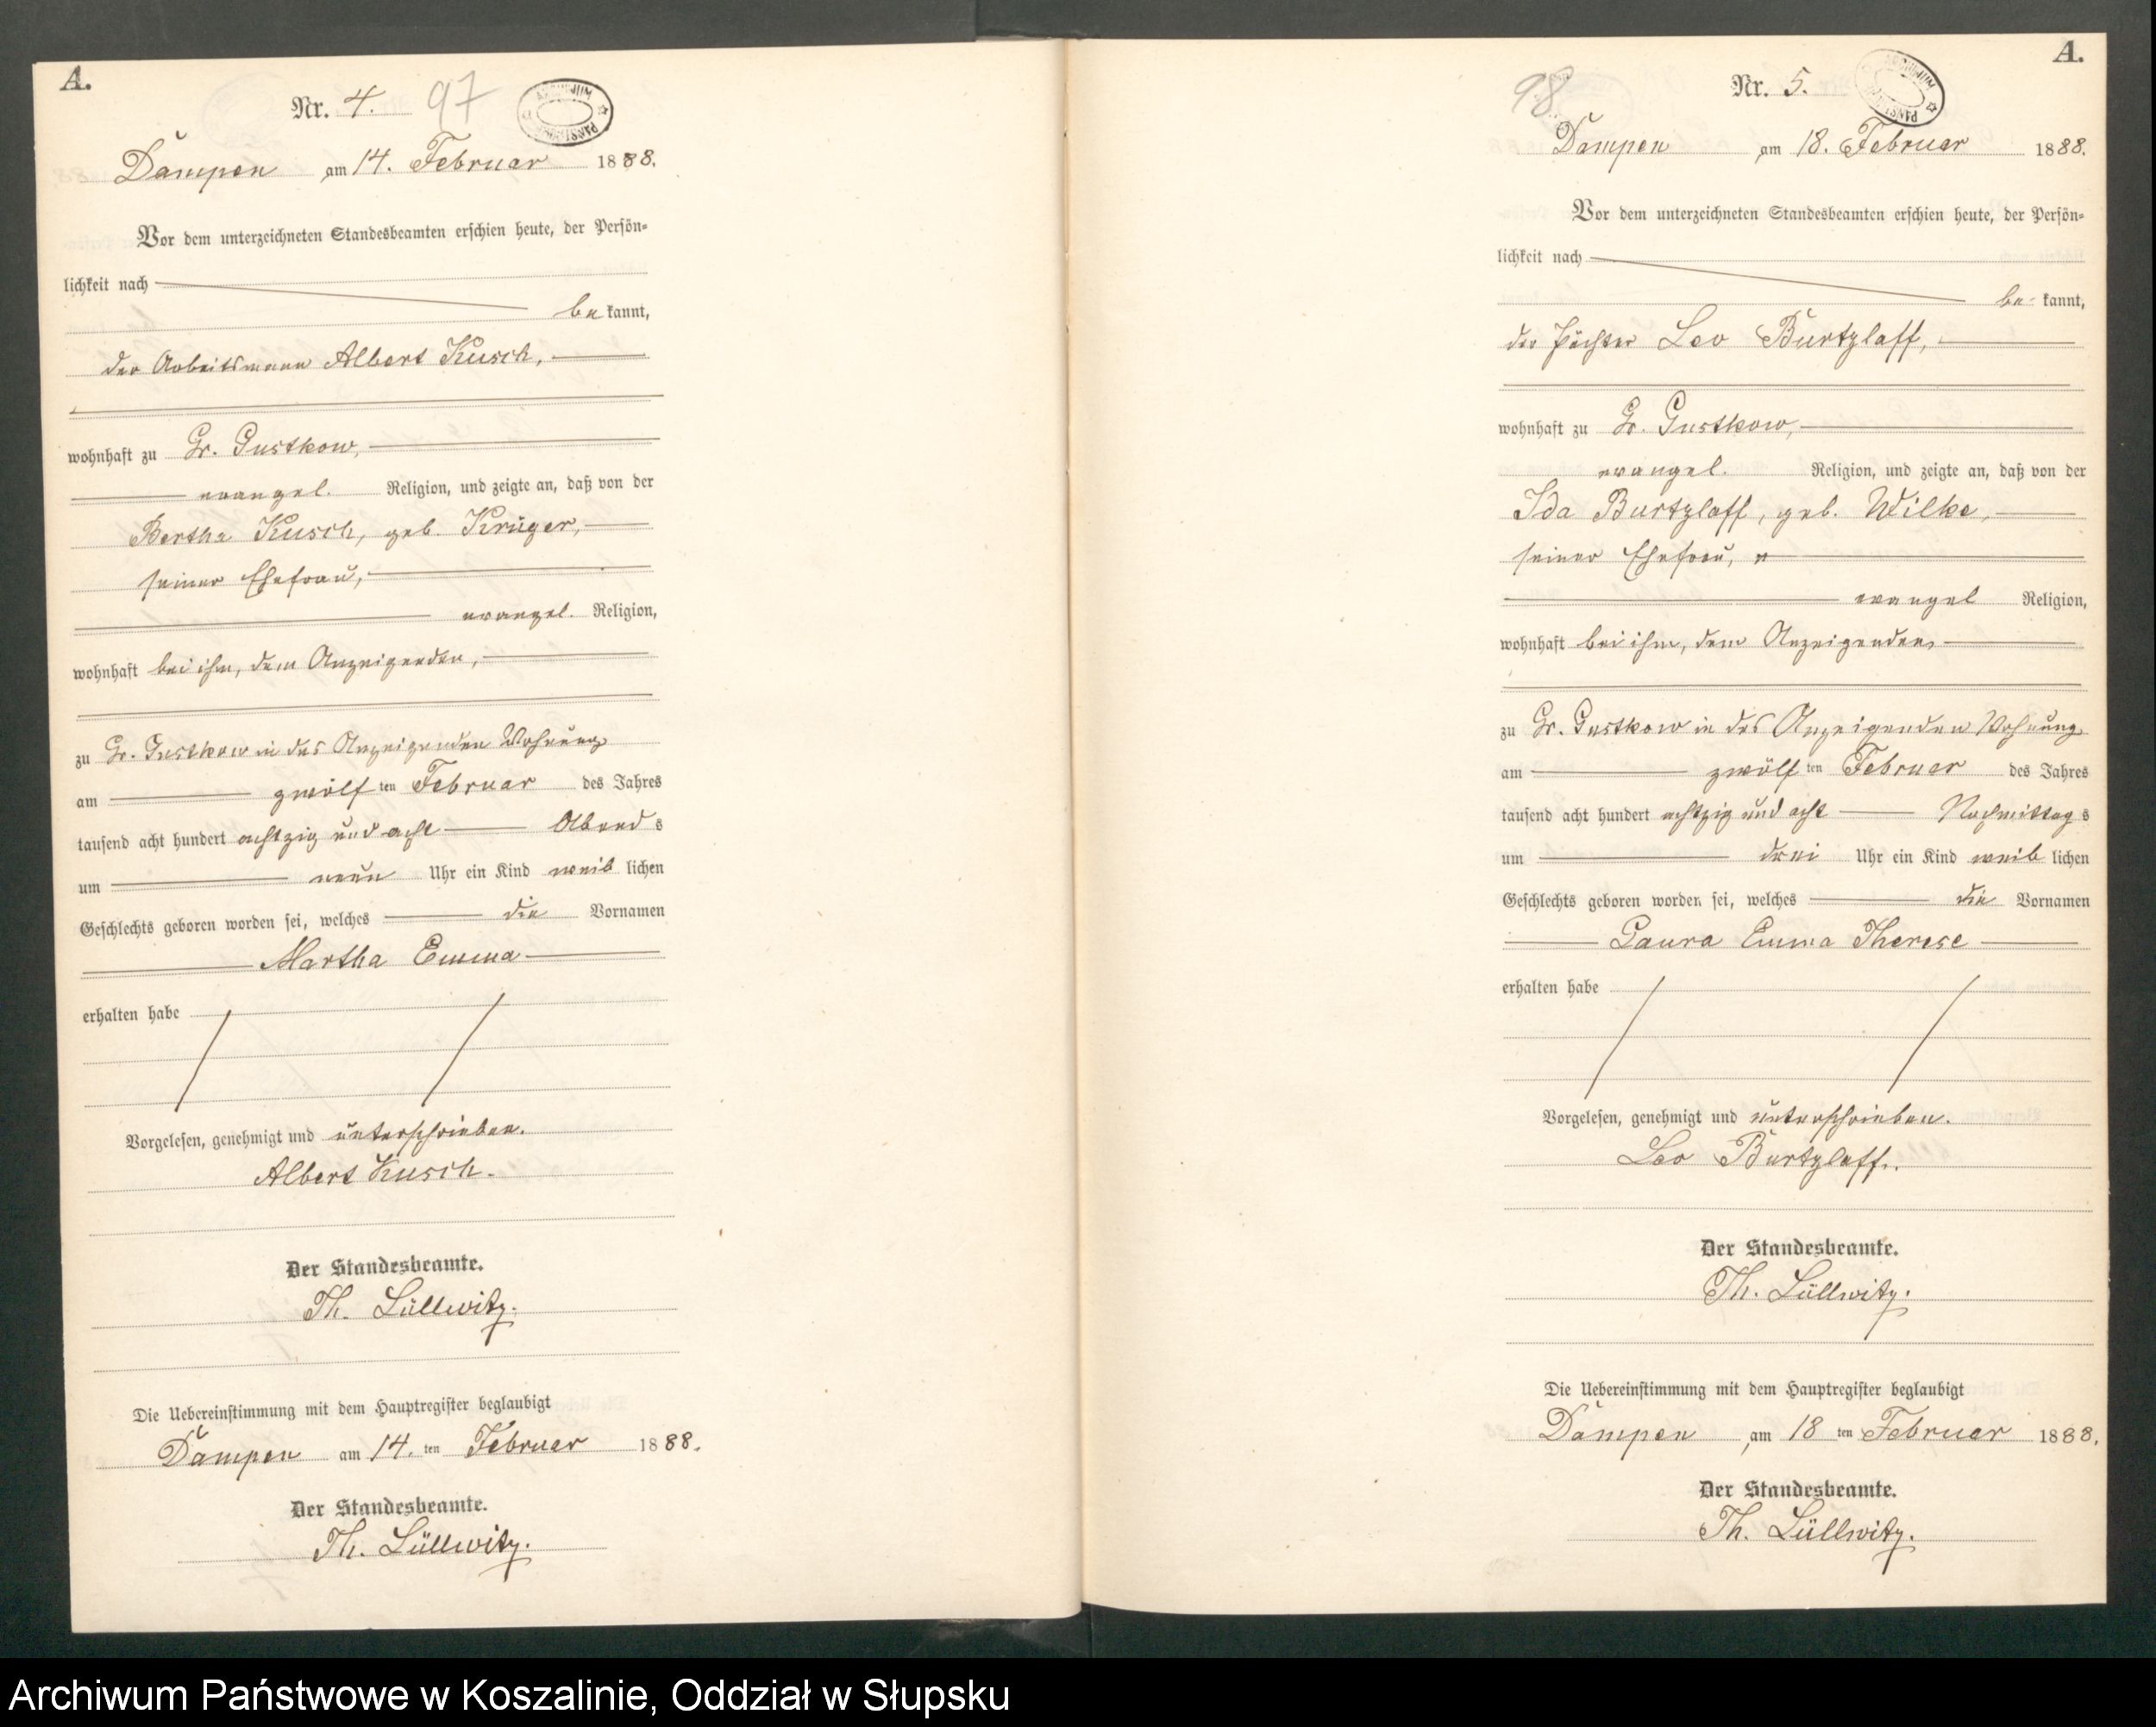 A.
Nr. 4. 97
ARCHIWUM PAŃSTWOWE
Dampen am 14. Februar 1888.
Vor dem unterzeichneten Standesbeamten erschien heute, der Persön-
lichkeit nach
be kannt,
der Arbeitsmann Albert Kusch,
wohnhaft zu Gr. Gustkow,
evangel. Religion, und zeigte an, daß von der
Bertha Kusch, geb. Krüger,
seiner Ehefrau,
evangel. Religion,
wohnhaft bei ihm, dem Anzeigenden,
zu Gr. Gustkow in des Anzeigenden Wohnung
am zwölf ten Februar des Jahres
tausend acht hundert achtzig und acht Abend s
um neun Uhr ein Kind weib lichen
Geschlechts geboren worden sei, welches die Vornamen
Martha Emma
erhalten habe
Vorgelesen, genehmigt und unterschrieben.
Albert Kusch.
Der Standesbeamte.
Th. Lüllwitz.
Die Uebereinstimmung mit dem Hauptregister beglaubigt
Dampen am 14. ten Februar 1888.
Der Standesbeamte.
Th. Lüllwitz.
A.
98 Nr. 5.
ARCHIWUM PAŃSTWOWE
Dampen am 18. Februar 1888.
Vor dem unterzeichneten Standesbeamten erschien heute, der Persön-
lichkeit nach
be kannt,
der Pächter Leo Burtzlaff,
wohnhaft zu Gr. Gustkow,
evangel. Religion, und zeigte an, daß von der
Ida Burtzlaff, geb. Wilke,
seiner Ehefrau,
evangel Religion,
wohnhaft bei ihm, dem Anzeigenden,
zu Gr. Gustkow in des Anzeigenden Wohnung
am zwölf ten Februar des Jahres
tausend acht hundert achtzig und acht Nachmittag s
um drei Uhr ein Kind weib lichen
Geschlechts geboren worden sei, welches die Vornamen
Laura Emma Therese
erhalten habe
Vorgelesen, genehmigt und unterschrieben.
Leo Burtzlaff.
Der Standesbeamte.
Th. Lüllwitz.
Die Uebereinstimmung mit dem Hauptregister beglaubigt
Dampen am 18 ten Februar 1888.
Der Standesbeamte.
Th. Lüllwitz.
Archiwum Państwowe w Koszalinie, Oddział w Słupsku